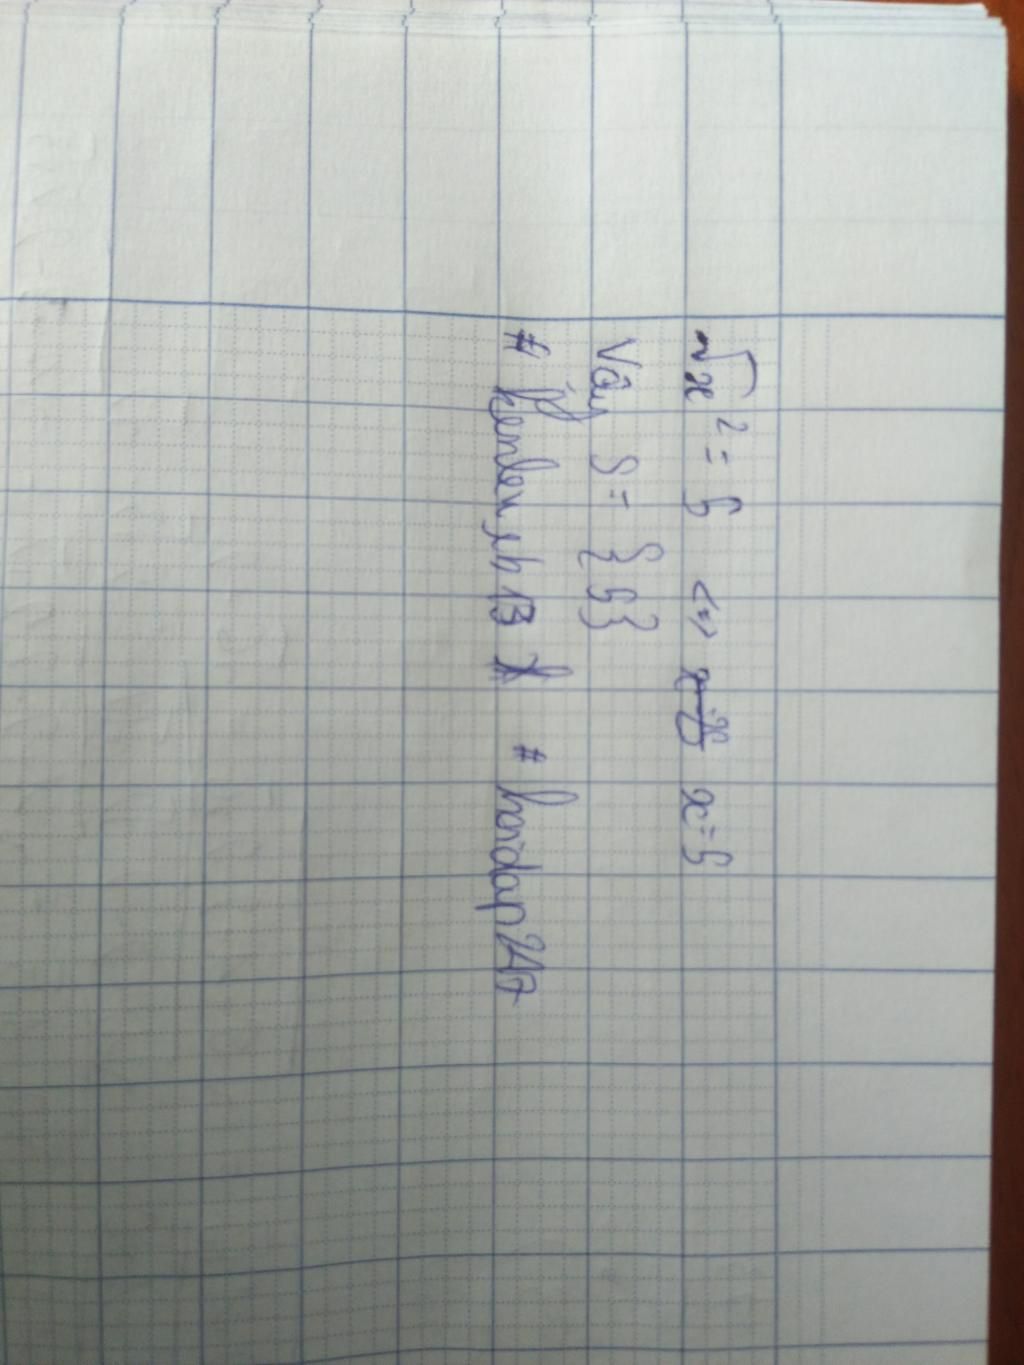 √x² = 5 <=> x = 5
Vậy S = {5}
# kenlennb13 # hoidap247